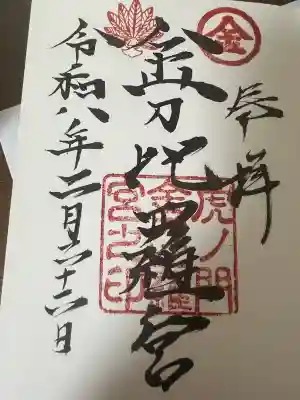 金
奉拝
金刀比羅宮
虎ノ門
金刀比羅
宮之印
令和八年二月二十六日